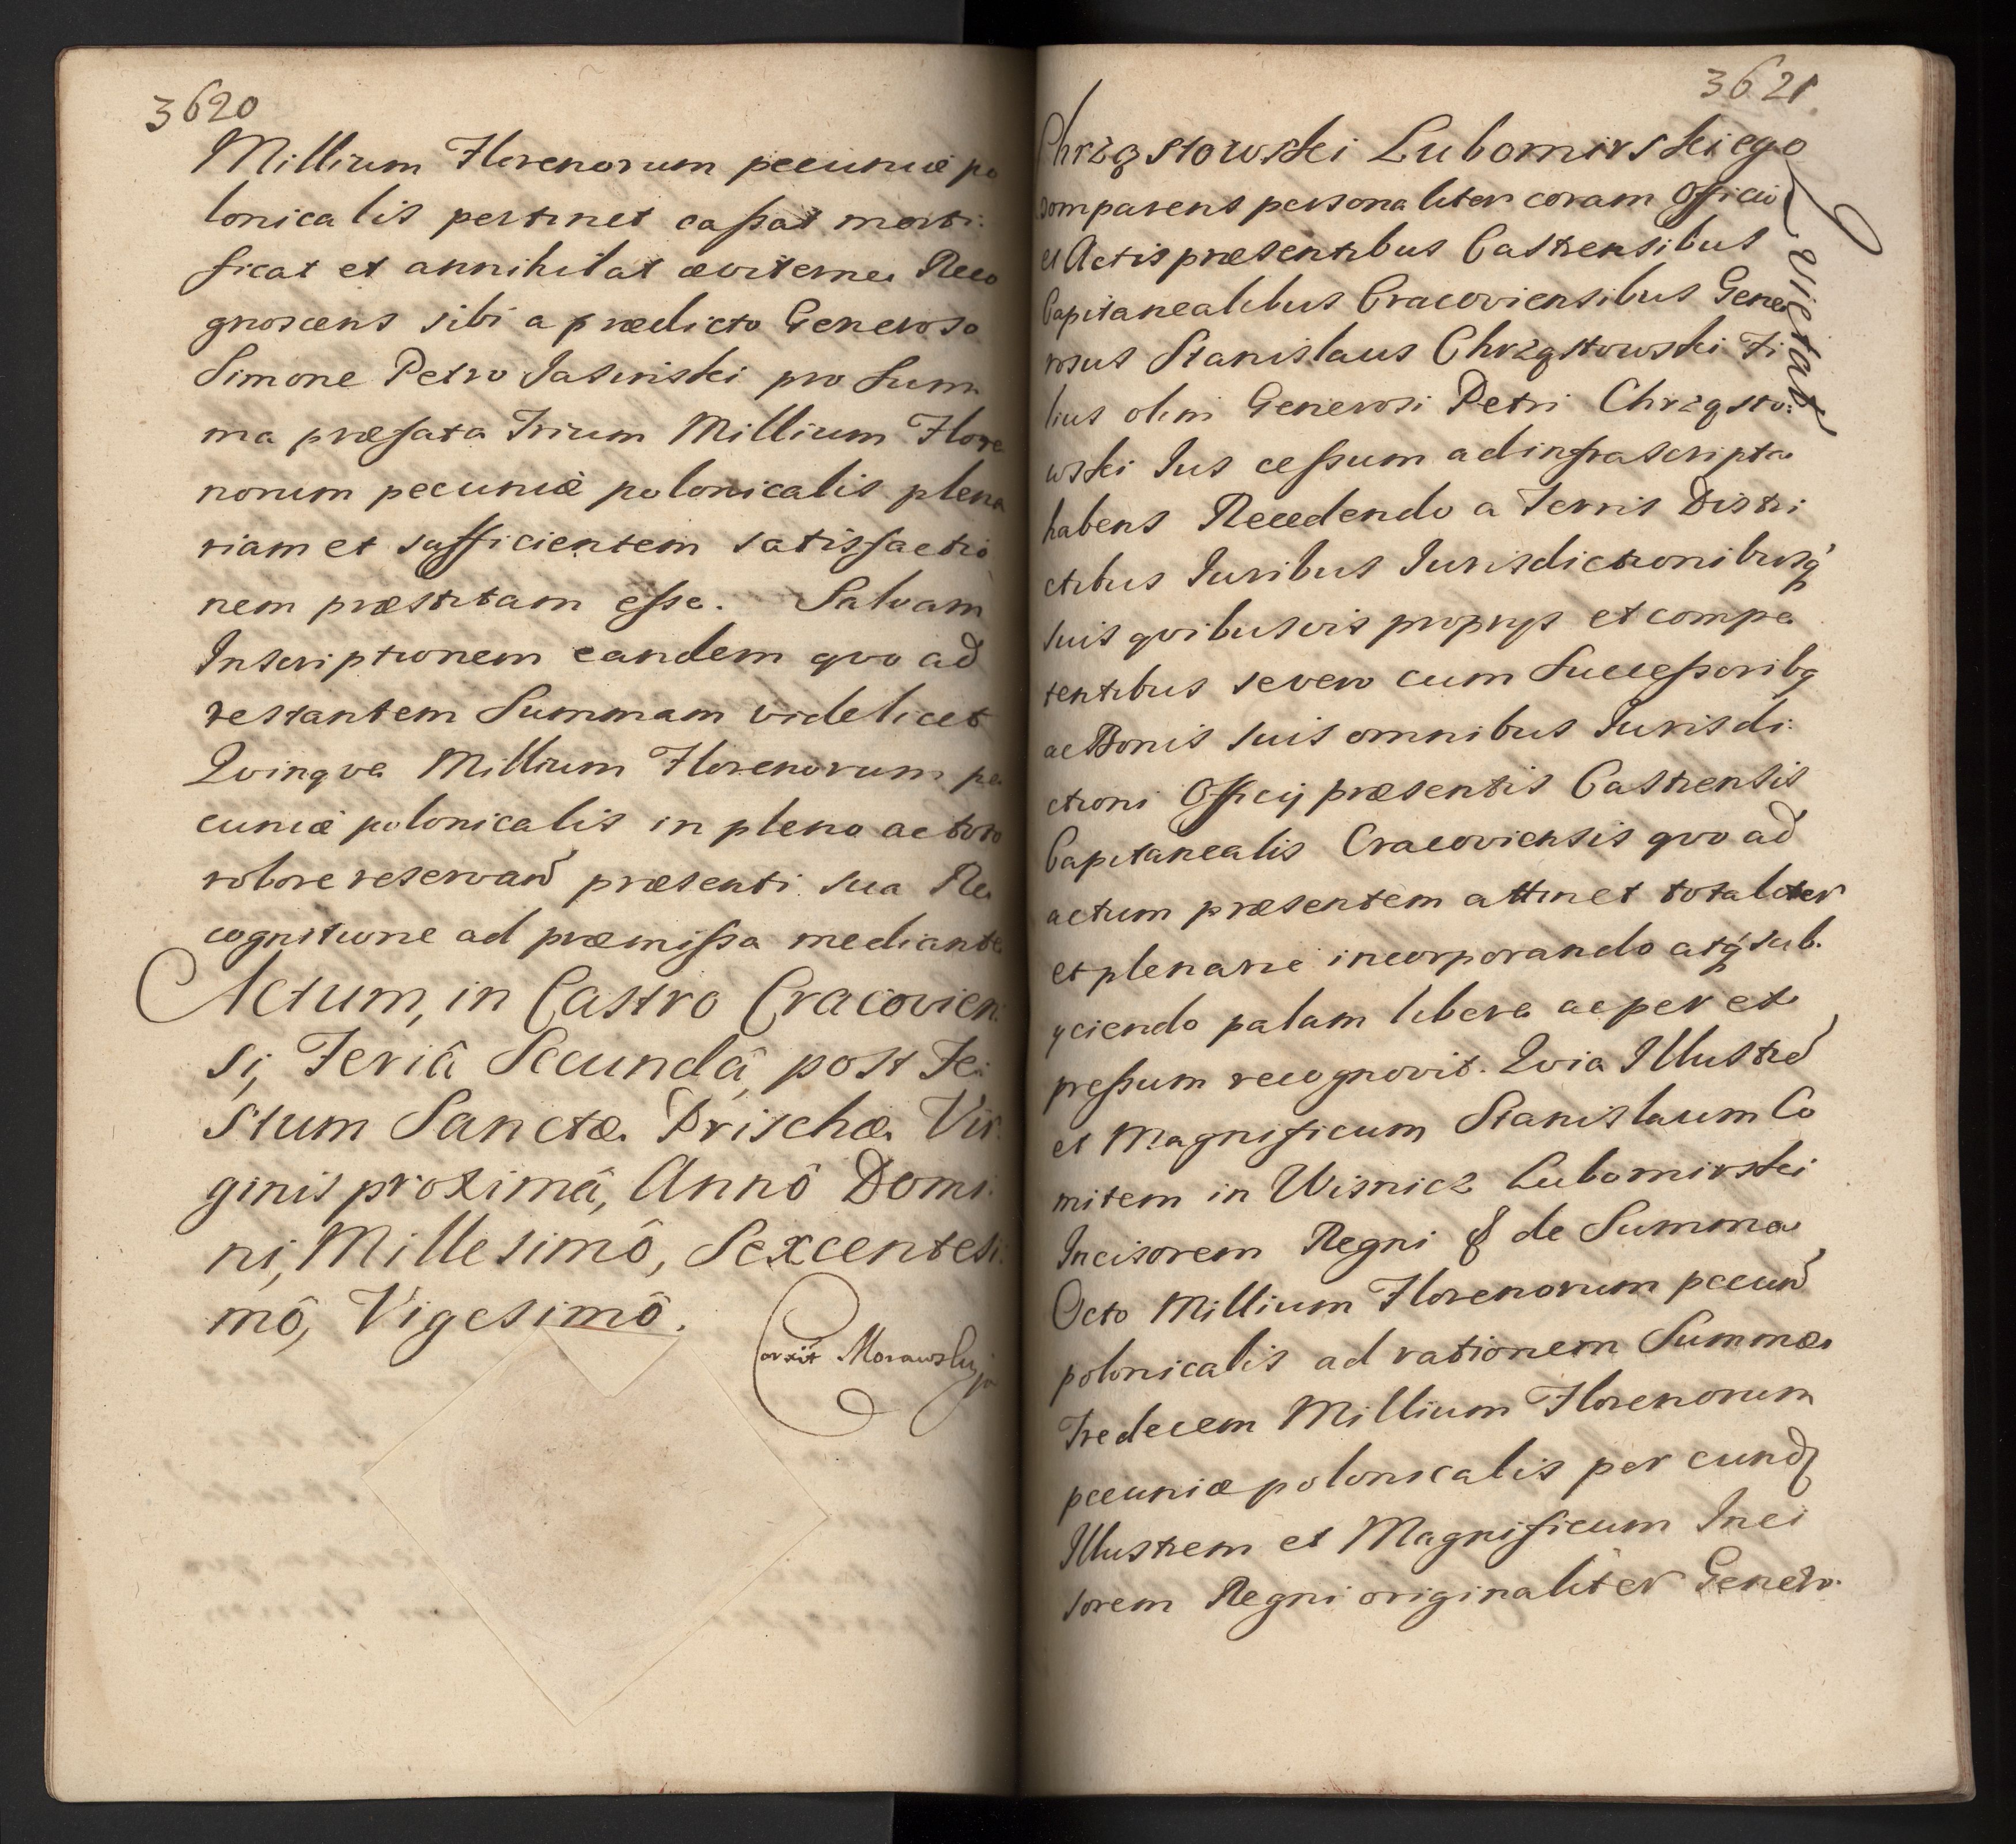 3620
Millium Florenorum pecuniæ po
lonicalis pertinet caßat morti:
ficat et annihilat æviterne Reco
gnoscens sibi a prædicto Generoso
Simone Petro Jasinski pro Sum
ma præfata Trium Millium Flore
norum pecuniæ polonicalis plena
riam et sufficientem satisfactio
nem præstitam eße. Salvam
Inscriptionem eandem qvo ad
restantem Summam videlicet
Qvinqve Millium Florenorum pe
cuniæ polonicalis in pleno ac toto
robore reservand præsenti sua Re
cognitione ad præmißa mediante
Actum, in Castro Cracovien:
si, Feriâ Secundâ, post Fe:
stum Sanctæ Prischæ Vir:
ginis proximâ, Annô Domi:
ni, Millesimô, Sexcentesi:
mô, Vigesimô.
Corxit Morawsky
3621
Chrząstowski Lubomirskiego
comparens personaliter coram Officio
et Actis præsentibus Castrensibus
Capitanealibus Cracoviensibus Gene
rosus Stanislaus Chrząstowski Fi
lius olim Generosi Petri Chrząsto:
wski Jus ceßum ad infrascripta
habens Recedendo a Terris Distri
ctibus Juribus Jurisdictionibusq
suis qvibusvis proprys et compe
tentibus se vero cum Succeßoribq
ac Bonis suis omnibus Jurisdi:
ctioni Officij præsentis Castrensis
Capitanealis Cracoviensis qvo ad
actum præsentem attinet totaliter
et plenarie incorporando atq sub.
yciendo palam libere ac per ex
preßum recognovit. Qvia Illustrê
et Magnificum Stanislaum Co
mitem in Wisnicz Lubomirski
Incisorem Regni & de Summa
Octo Millium Florenorum pecun
polonicalis ad rationem Summæ
Tredecem Millium Florenorum
pecuniæ polonicalis per eund
Illustrem et Magnificum Inci
sorem Regni originaliter Genero:
Qvietat